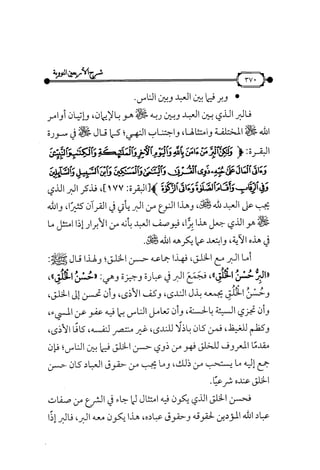 شرح الأربعين النووية
٣٧٠
• وبر فيما بين العبد وبين الناس.
فالبر الذي بين العبد وبين ربه ﷻ هو بالإيمان، وإتيان أوامر
الله ﷻ المختلفة وامتثالها، واجتناب النهي؛ كما قال ﷻ في سورة
البقرة: ﴿ وَلَكِنَّ الْبِرَّ مَنْ ءَامَنَ بِاللَّهِ وَالْيَوْمِ الْآخِرِ وَالْمَلَائِكَةِ وَالْكِتَابِ وَالنَّبِيِّينَ
وَءَاتَى الْمَالَ عَلَى حُبِّهِ ذَوِي الْقُرْبَى وَالْيَتَامَى وَالْمَسَاكِينَ وَابْنَ السَّبِيلِ وَالسَّائِلِينَ
وَفِي الرِّقَابِ وَأَقَامَ الصَّلَاةَ وَءَاتَى الزَّكَاةَ ﴾ [البقرة: ١٧٧]، فذكر البر الذي
يجب على العبد لله ﷻ، وهذا النوع من البر يأتي في القرآن كثيرًا، والله
ﷻ هو الذي جعل هذا برًّا، فيوصف العبد بأنه من الأبرار إذا امتثل ما
في هذه الآية، وابتعد عما يكرهه الله ﷻ.
أما البر مع الخلق، فهذا جماعه حسن الخلق؛ ولهذا قال ﷺ:
«البِرُّ حُسْنُ الْخُلُقِ»، فجَمَع البر في عبارة وجيزة وهي: «حُسْنُ الْخُلُقِ»،
وحُسْنُ الْخُلُقِ يجمعه بذل الندى، وكف الأذى، وأن تحسن إلى الخلق،
وأن تجزي السيئة بالحسنة، وأن تعامل الناس بما فيه عفو عن المسيء،
وكظم للغيظ، فمن كان باذلًا للندى، غير منتصر لنفسه، كافًّا الأذى،
مقدمًا المعروف للخلق فهو من ذوي حسن الخلق فيما بين الناس؛ فإن
جمع إليه ما يستحب من ذلك، وما يجب من حقوق العباد كان حسن
الخلق عنده شرعيًّا.
فحسن الخلق الذي يكون فيه امتثال لما جاء في الشرع من صفات
عباد الله المؤدين لحقوقه وحقوق عباده، هذا يكون معه البر، فالبر إذًا